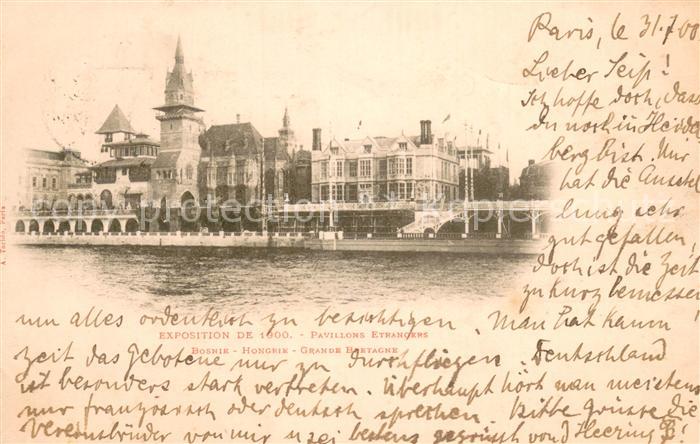 Paris, le 31.7.00
Lieber Seip!
Ich hoffe doch, dass
du noch in Heidel
berg bist. Mir
hat die Ausstel
lung sehr
gut gefallen,
doch ist die Zeit
zu kurz bemessen
um alles ordentlich zu besichtigen. Man hat kaum
EXPOSITION DE 1900. - PAVILLONS ETRANGERS
BOSNIE - HONGRIE - GRANDE BRETAGNE
zeit das gebotene nur zu durchfliegen. Deutschland
ist besonders stark vertreten. Überhaupt hört man meistens
nur französisch oder deutsch sprechen. Bitte grüsse die
Vereinsbrüder von mir u sei bestens gegrüsst von
A. Taride, Paris
copyright protected